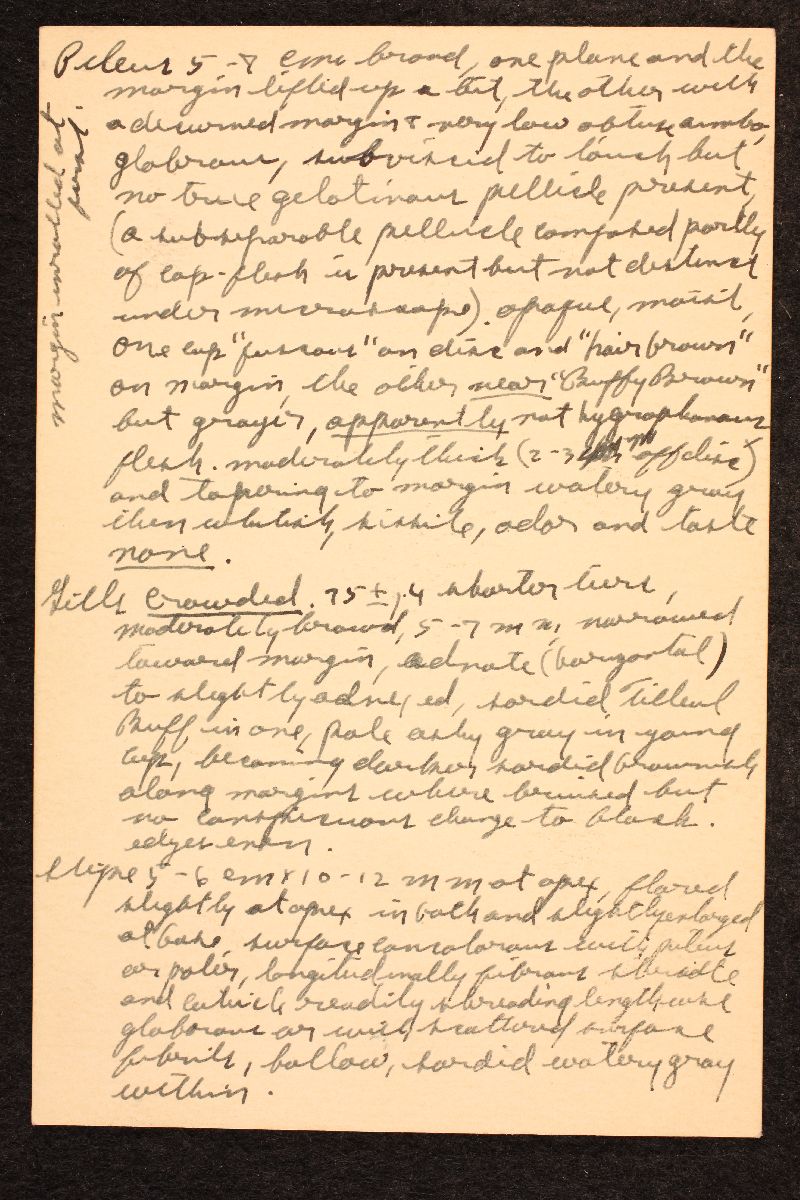 Pileus 5-7 cm broad, one plane and the
margin lifted up a bit, the other with
a decurved margin & very low obtuse umbo,
glabrous, subviscid to touch but
no true gelatinous pellicle present,
(a subseparable pellicle composed partly
of cap-flesh is present but not distinct
under microscope). opaque, moist,
one cap "fuscous" on disc and "hair brown"
on margin, the other near "Buffy Brown"
but grayer, apparently not hygrophanous
flesh. moderately thick (2-3 mm off disc)
and tapering to margin watery gray
then whitish, odor and taste
none.
margin inrolled at
first.
Gills crowded. 75±, 4 shorter tiers,
moderately broad, 5-7 mm, narrowed
toward margin, adnate (horizontal)
to slightly adnexed, sordid Tilleul
Buff in one, pale ashy gray in young
cap, becoming darker sordid brownish
along margins where bruised but
no conspicuous change to black.
edges even.
Stipe 5-6 cm x 10-12 mm at apex, flared
slightly at apex in both and slightly enlarged
at base, surface concolorous with pileus
or paler, longitudinally fibrous striate
and cuticle readily shredding lengthwise
glabrous or with scattered surface
fibrils, hollow, sordid watery gray
within.